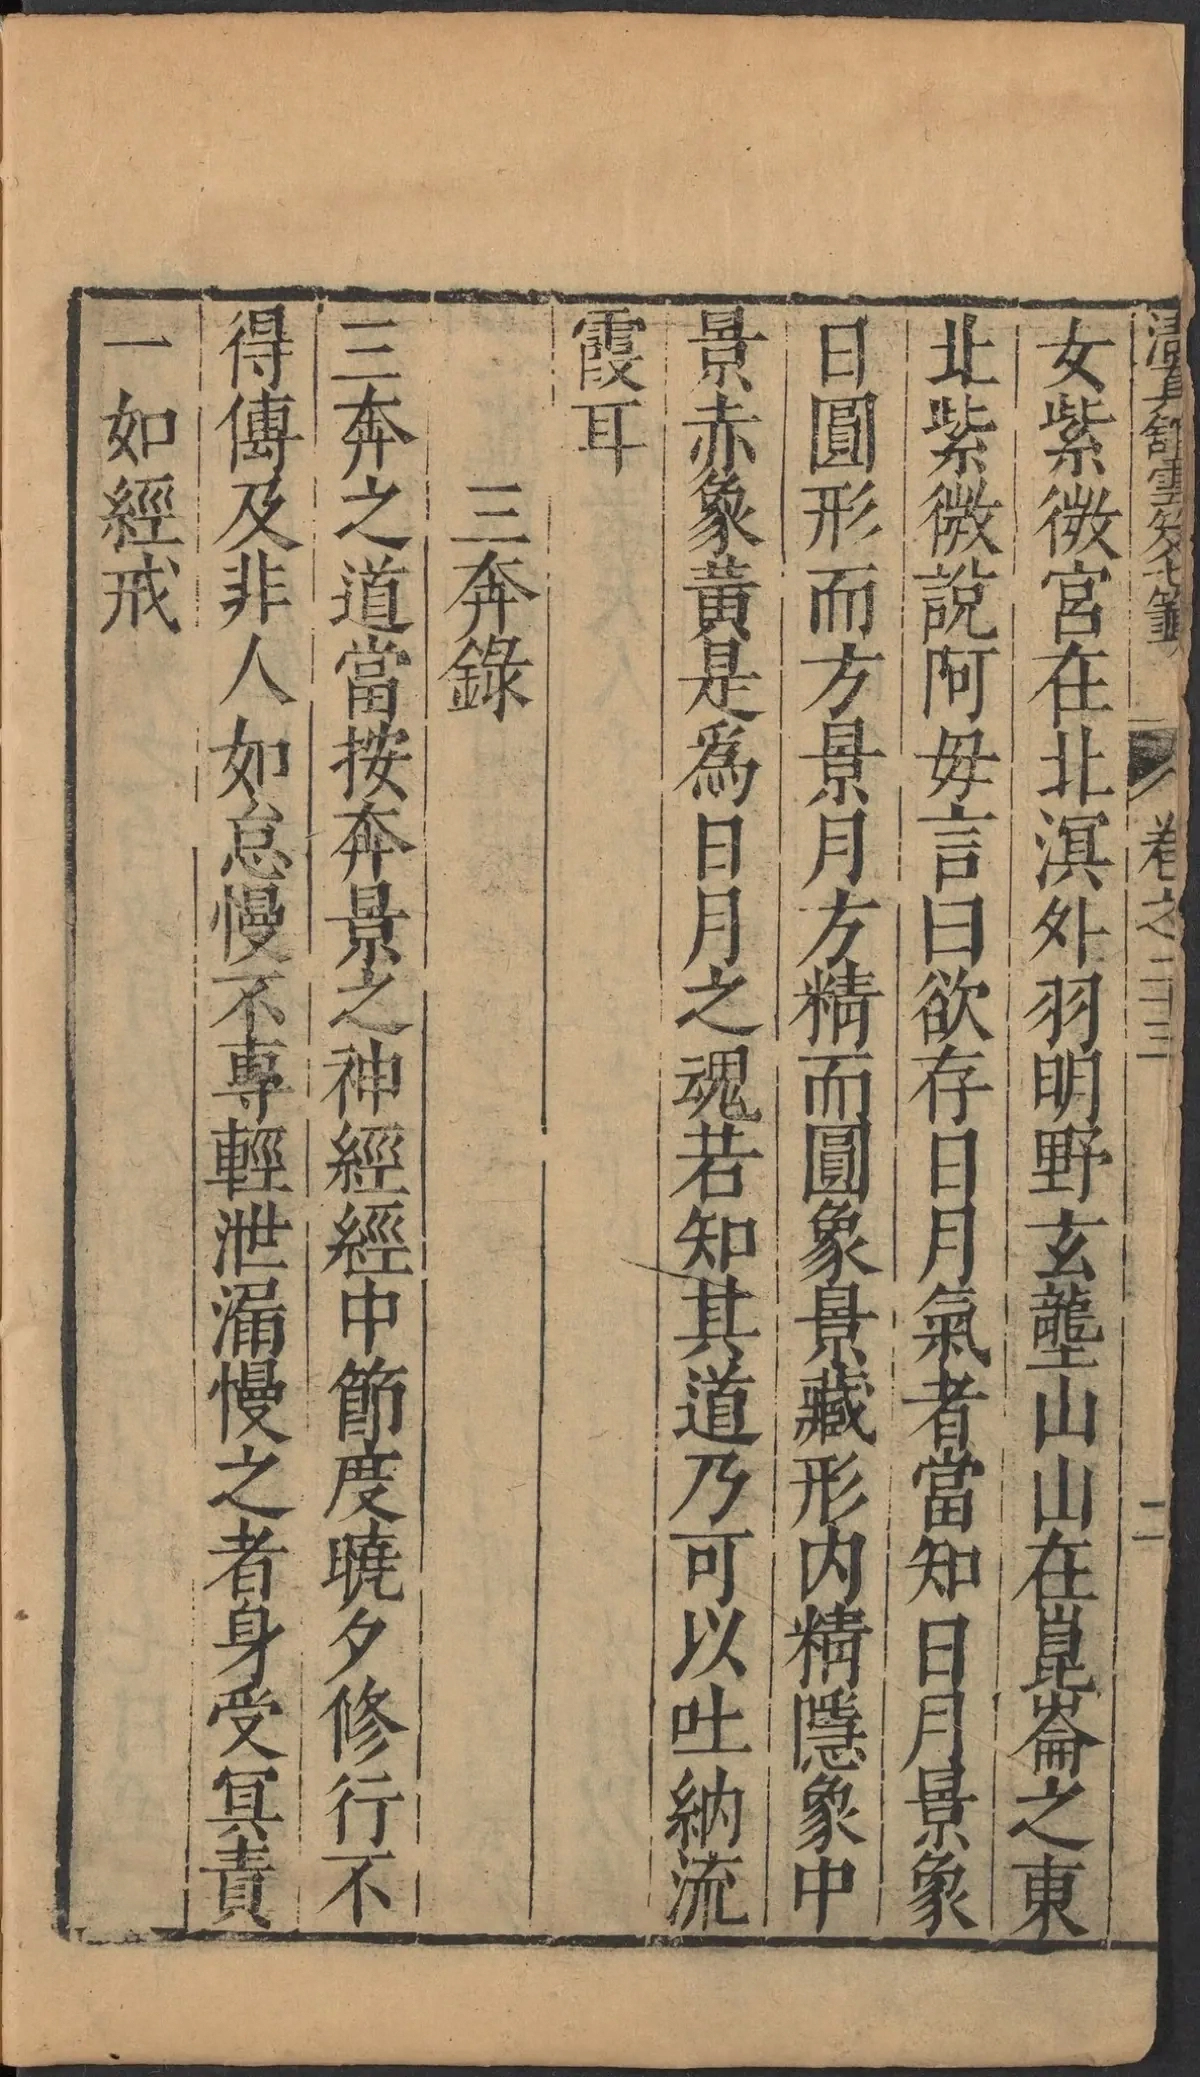 清真館雲笈七籤 卷之二十三 二
女紫微宮在北溟外羽明野玄壟山山在崑崙之東
北紫微說阿毋言曰欲存日月氣者當知日月景象
日圓形而方景月方精而圓象景藏形內精隱象中
景赤象黃是為日月之魂若知其道乃可以吐納流
霞耳
三奔錄
三奔之道當按奔景之神經經中節度曉夕修行不
得傳及非人如怠慢不專輕泄漏慢之者身受冥責
一如經戒